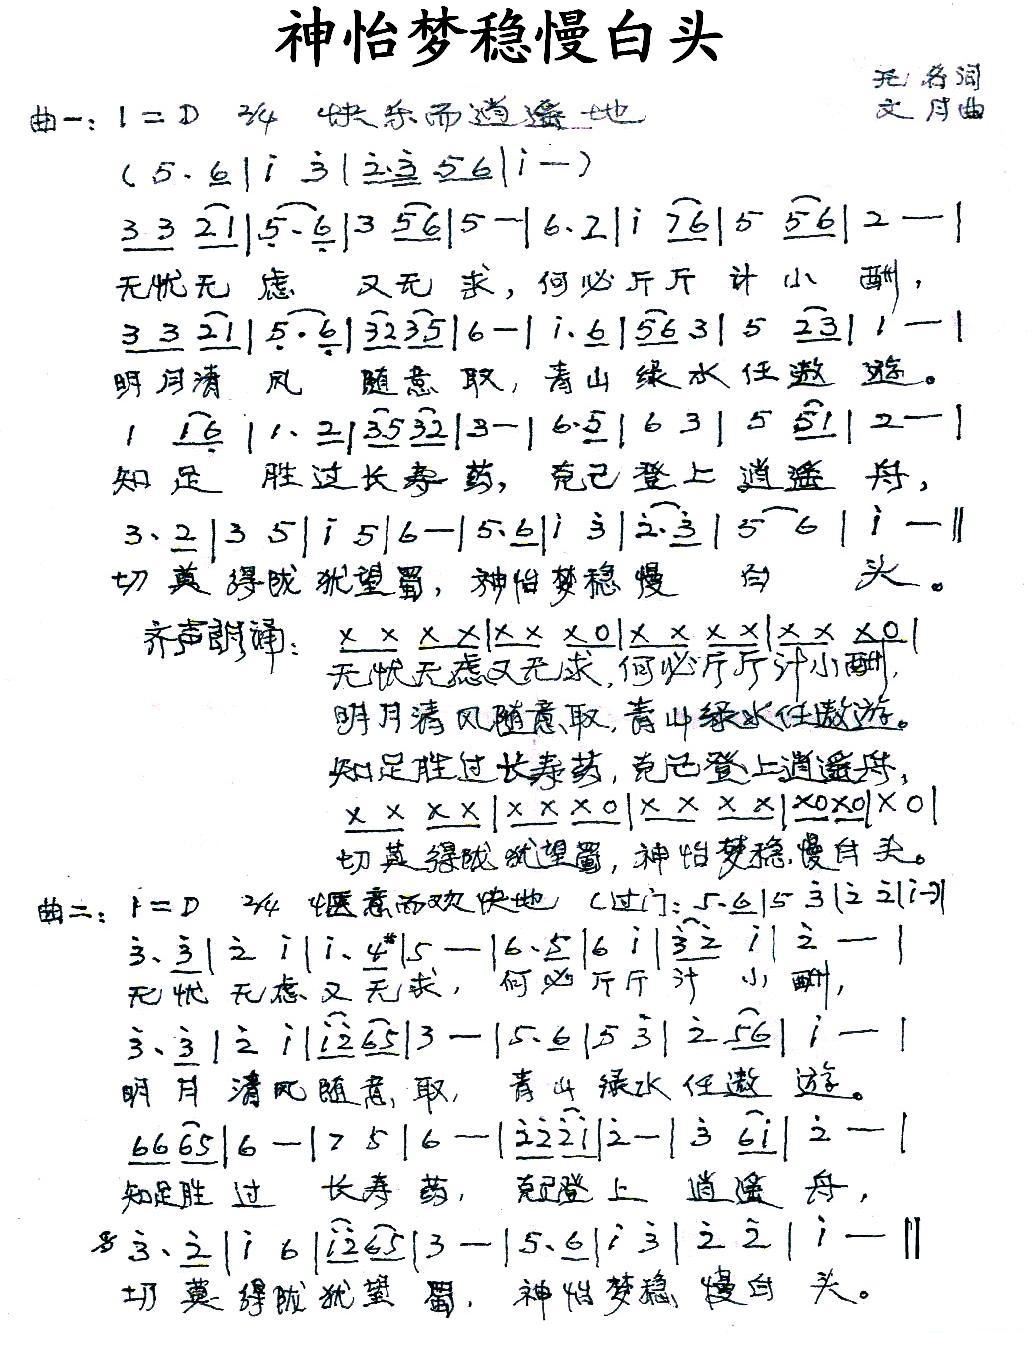 神怡梦稳慢白头
无名词
文月曲
曲一：1=D 2/4 快乐而逍遥地
(5. 6|i 3|2.3 56|i —)
3 3 21|5. 6|3 56|5 —|6. 2|i 76|5 56|2 —|
无忧无虑 又无求，何必斤斤计小酬，
3 3 21|5. 6|32 35|6 —|i. 6|56 3|5 23|1 —|
明月清风 随意取，青山绿水任遨游。
1 16|1. 2|35 32|3 —|6. 5|6 3|5 51|2 —|
知足胜过长寿药，克己登上逍遥舟，
3. 2|3 5|i 5|6 —|5. 6|i 3|2. 3|5 6|i —‖
切莫得陇犹望蜀，神怡梦稳慢白头。
齐声朗诵：X X X X|X X X 0|X X X X|X X X 0|
无忧无虑又无求，何必斤斤计小酬，
明月清风随意取，青山绿水任遨游。
知足胜过长寿药，克己登上逍遥舟，
X X X X|X X X 0|X X X X|X0 X0|X 0|
切莫得陇犹望蜀，神怡梦稳慢白头。
曲二：1=D 2/4 惬意而欢快地 (过门：5. 6|5 3|2 2|i —)|
3. 3|2 i|i. 4#|5 —|6. 5|6 i|32 i|2 —|
无忧无虑又无求，何必斤斤计小酬，
3. 3|2 i|i2 65|3 —|5. 6|5 3|2 56|i —|
明月清风随意取，青山绿水任遨游。
66 65|6 —|7 5|6 —|22 2i|2 —|3 6i|2 —|
知足胜过长寿药，克己登上逍遥舟，
3. 2|i 6|i2 65|3 —|5. 6|i 3|2 2|i —‖
切莫得陇犹望蜀，神怡梦稳慢白头。